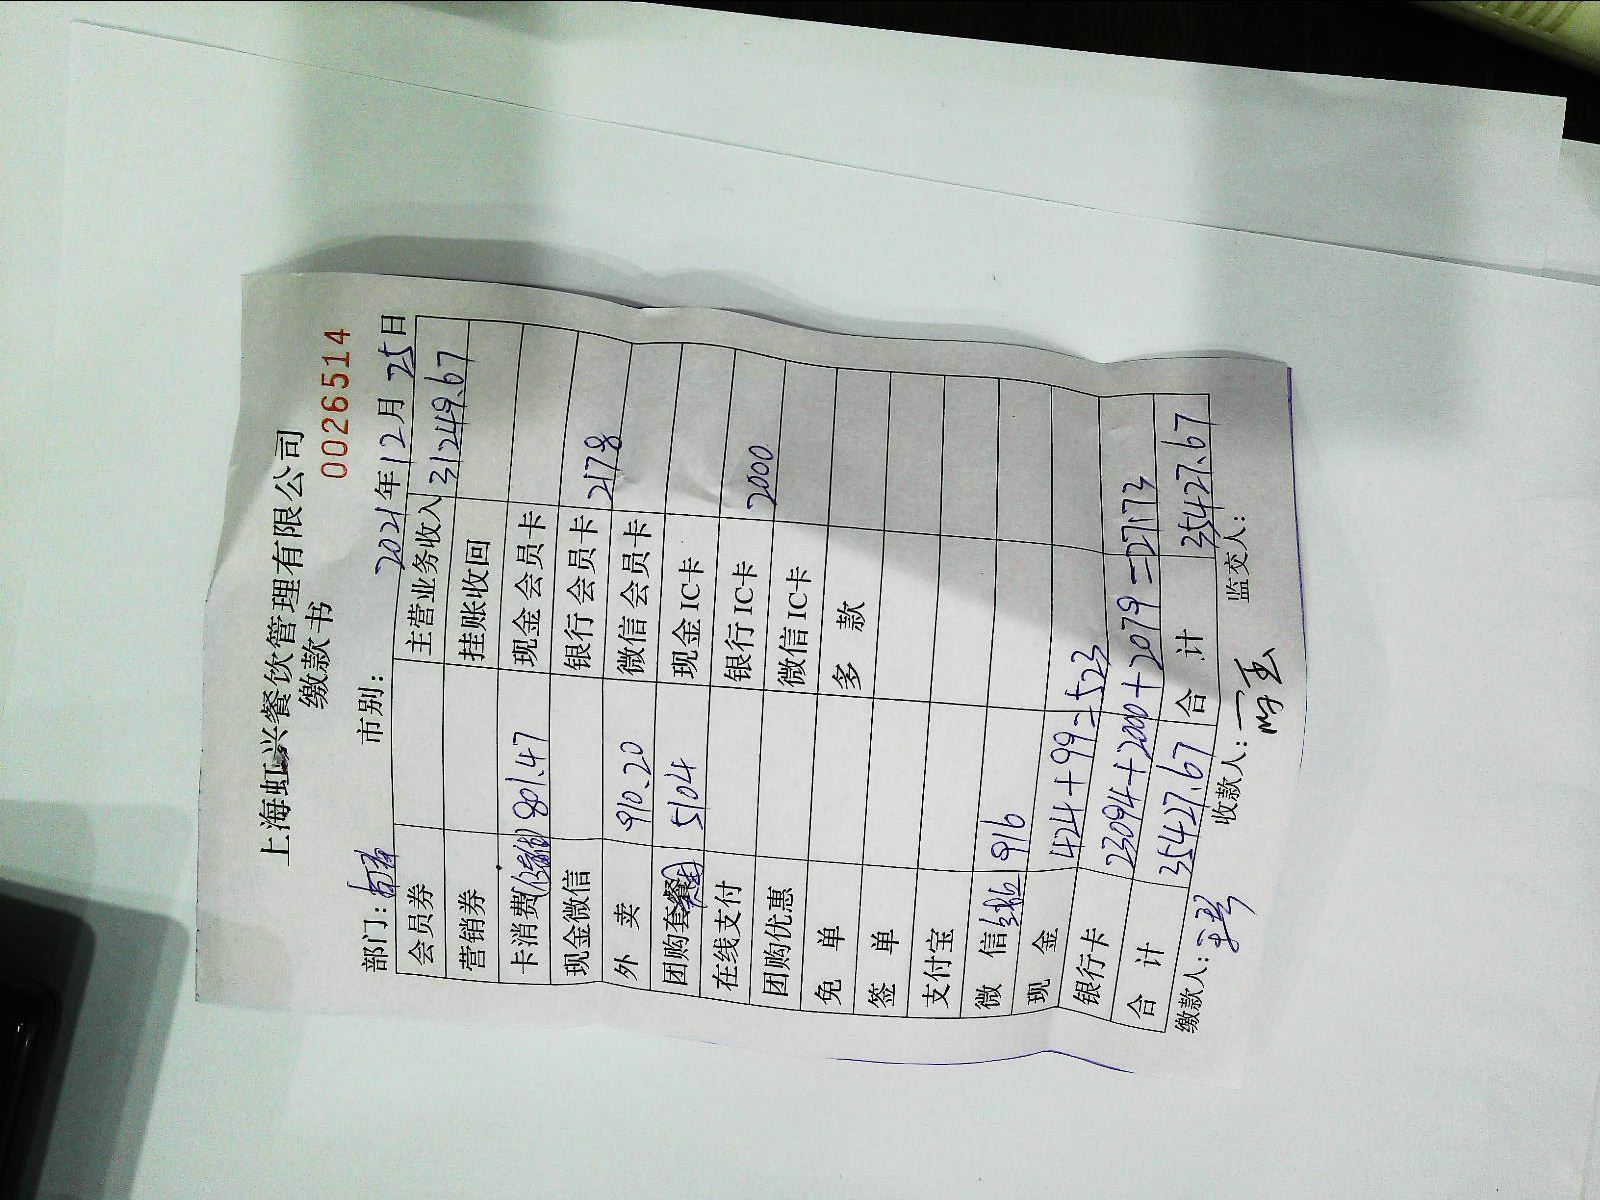 上海虹兴餐饮管理有限公司
缴款书
0026514
部门: 市别: 2021年12月25日
会员券 主营业务收入 31249.67
营销券 挂账收回
卡消费 801.47 现金会员卡
现金微信 银行会员卡 2178
外 卖 910.20 微信会员卡
团购套餐 5104 现金IC卡
在线支付 银行IC卡 2000
团购优惠 微信IC卡
免 单 多 款
签 单
支付宝
微 信 916
现 金 424+99=523
银行卡 23094+2000+2079=27173
合 计 35427.67 合 计 35427.67
缴款人: 收款人: 监交人: